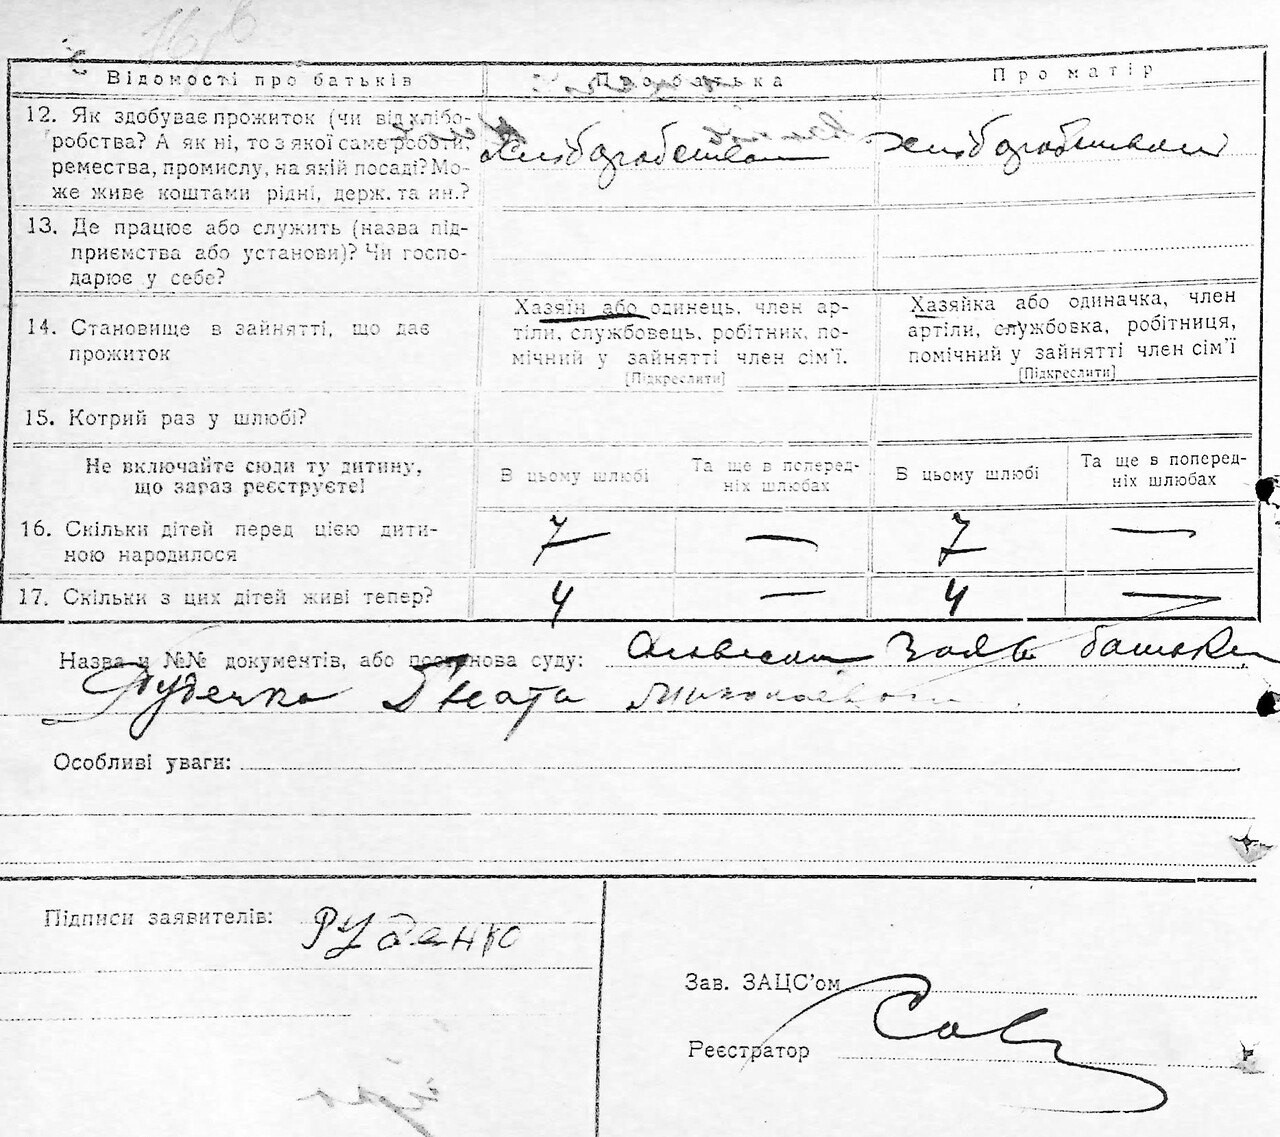 Відомості про батьків
Про батька
Про матір
12. Як здобуває прожиток (чи від хлібо-
робства? А як ні, то з якої саме роботи,
ремества, промислу, на якій посаді? Мо-
же живе коштами рідні, держ. та ин.?
хліборобством
хліборобством
13. Де працює або служить (назва під-
приємства або установи)? Чи госпо-
дарює у себе?
14. Становище в зайнятті, що дає
прожиток
Хазяїн або одинець, член ар-
тіли, службовець, робітник, по-
мічний у зайнятті член сім'ї.
[Підкреслити]
Хазяйка або одиначка, член
артіли, службовка, робітниця,
помічний у зайнятті член сім'ї
[Підкреслити]
15. Котрий раз у шлюбі?
Не включайте сюди ту дитину,
що зараз реєструєте!
В цьому шлюбі
Та ще в поперед-
ніх шлюбах
В цьому шлюбі
Та ще в поперед-
ніх шлюбах
16. Скільки дітей перед цією дити-
ною народилося
7 — 7 —
17. Скільки з цих дітей живі тепер?
4 — 4 —
Назва и №№ документів, або постанова суду: заява батька
Руденко Гната Миколаевого
Особливі уваги:
Підписи заявителів: Руденко
Зав. ЗАЦС'ом
Реєстратор